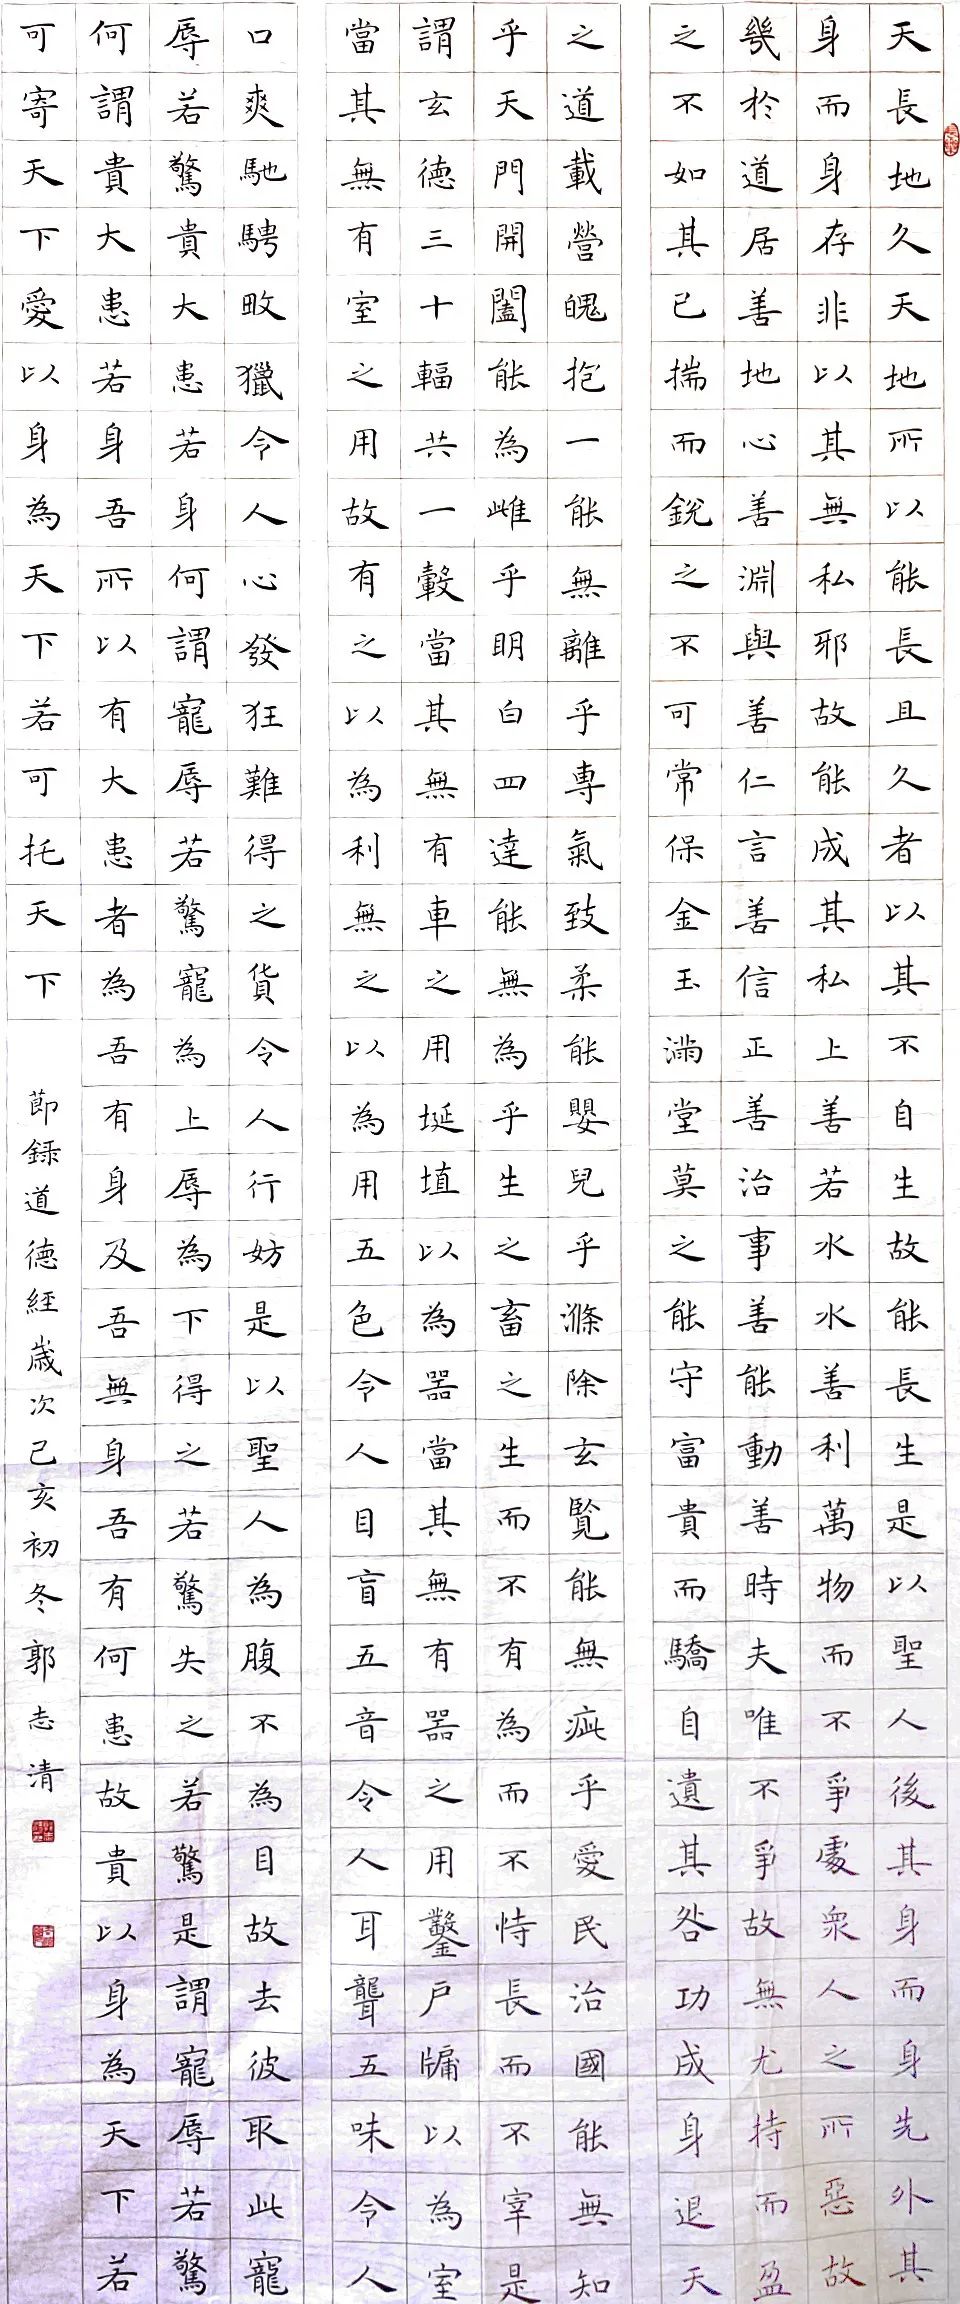 天長地久天地所以能長且久者以其不自生故能長生是以聖人後其身而身先外其
身而身存非以其無私邪故能成其私上善若水水善利萬物而不爭處衆人之所惡故
幾於道居善地心善淵與善仁言善信正善治事善能動善時夫唯不爭故無尤持而盈
之不如其已揣而銳之不可常保金玉滿堂莫之能守富貴而驕自遺其咎功成身退天
之道載營魄抱一能無離乎專氣致柔能嬰兒乎滌除玄覽能無疵乎愛民治國能無知
乎天門開闔能為雌乎明白四達能無為乎生之畜之生而不有為而不恃長而不宰是
謂玄德三十輻共一轂當其無有車之用埏埴以為器當其無有器之用鑿戶牖以為室
當其無有室之用故有之以為利無之以為用五色令人目盲五音令人耳聾五味令人
口爽馳騁畋獵令人心發狂難得之貨令人行妨是以聖人為腹不為目故去彼取此寵
辱若驚貴大患若身何謂寵辱若驚寵為上辱為下得之若驚失之若驚是謂寵辱若驚
何謂貴大患若身吾所以有大患者為吾有身及吾無身吾有何患故貴以身為天下若
可寄天下愛以身為天下若可托天下
節錄道德經歲次己亥初冬郭志清